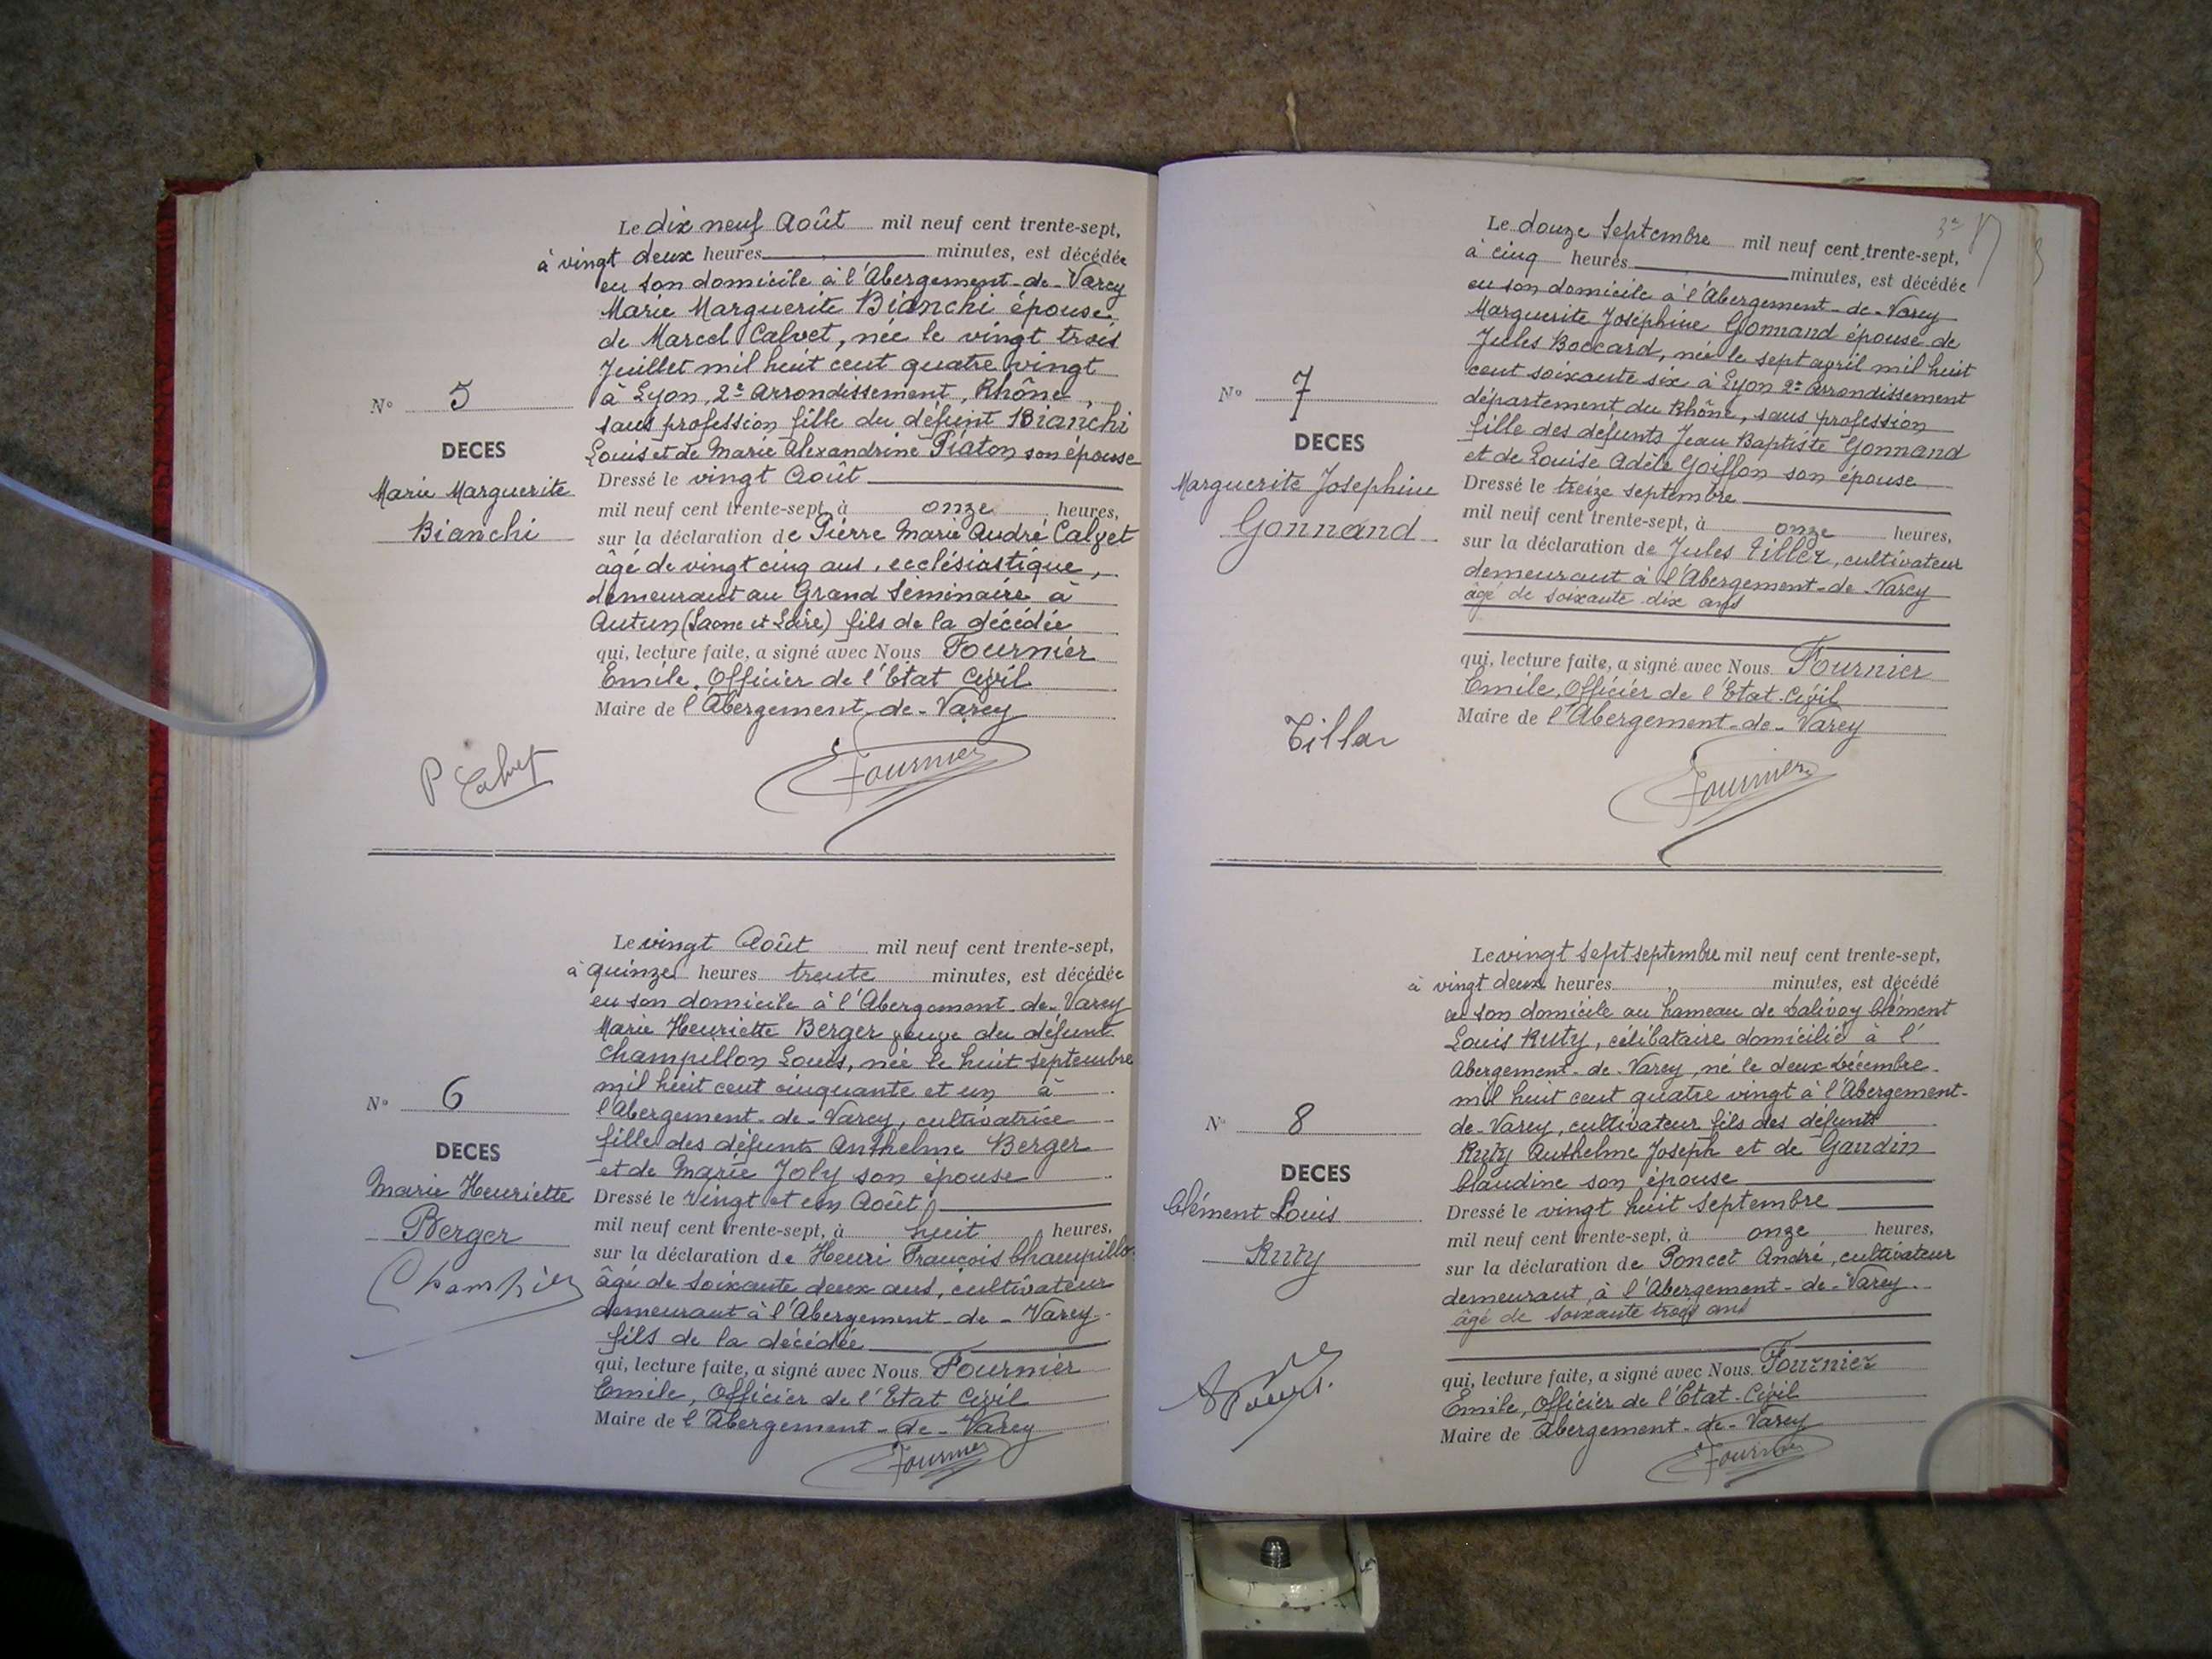 Le dix neuf Août mil neuf cent trente-sept,
à vingt deux heures minutes, est décédée
en son domicile à l'Abergement-de-Varey
Marie Marguerite Bianchi épouse
de Marcel Calvet, née le vingt trois
Juillet mil huit cent quatre vingt
à Lyon, 2e Arrondissement, Rhône,
sans profession fille du défunt Bianchi
Louis et de Marie Alexandrine Piaton son épouse
Dressé le vingt Août
mil neuf cent trente-sept, à onze heures,
sur la déclaration de Pierre Marie André Calvet
âgé de vingt cinq ans, ecclésiastique,
demeurant au Grand Séminaire à
Autun (Saone et Loire) fils de la décédée
qui, lecture faite, a signé avec Nous Fournier
Emile, Officier de l'Etat Civil
Maire de l'Abergement-de-Varey
N° 5
DECES
Marie Marguerite
Bianchi
P Calvet
Fournier
Le vingt Août mil neuf cent trente-sept,
à quinze heures trente minutes, est décédée
en son domicile à l'Abergement-de-Varey
Marie Henriette Berger veuve du défunt
Champillon Louis, née le huit septembre
mil huit cent cinquante et un à
l'Abergement-de-Varey, cultivatrice
fille des défunts Anthelme Berger
et de Marie Joly son épouse
Dressé le vingt et un Août
mil neuf cent trente-sept, à huit heures,
sur la déclaration de Henri François Champillon
âgé de soixante deux ans, cultivateur
demeurant à l'Abergement-de-Varey
fils de la décédée
qui, lecture faite, a signé avec Nous Fournier
Emile, Officier de l'Etat Civil
Maire de l'Abergement-de-Varey
N° 6
DECES
Marie Henriette
Berger
Fournier
Le douze Septembre mil neuf cent trente-sept,
à cinq heures minutes, est décédée
en son domicile à l'Abergement-de-Varey
Marguerite Joséphine Gonnand épouse de
Jules Boccard, née le sept avril mil huit
cent soixante six à Lyon 2e Arrondissement
département du Rhône, sans profession
fille des défunts Jean Baptiste Gonnand
et de Louise Adèle Goiffon son épouse
Dressé le treize septembre
mil neuf cent trente-sept, à onze heures,
sur la déclaration de Jules Tiller, cultivateur
demeurant à l'Abergement-de-Varey
âgé de soixante dix ans
qui, lecture faite, a signé avec Nous Fournier
Emile, Officier de l'Etat-Civil
Maire de l'Abergement-de-Varey
N° 7
DECES
Marguerite Josephine
Gonnand
Tiller
Fournier
Le vingt sept septembre mil neuf cent trente-sept,
à vingt deux heures minutes, est décédé
en son domicile au hameau de Salivoy Clément
Louis Ruty, célibataire domicilié à l'
Abergement-de-Varey, né le deux Décembre
mil huit cent quatre vingt à l'Abergement-
de-Varey, cultivateur fils des défunts
Ruty Anthelme Joseph et de Gaudin
Claudine son épouse
Dressé le vingt huit septembre
mil neuf cent trente-sept, à onze heures,
sur la déclaration de Poncet André, cultivateur
demeurant à l'Abergement-de-Varey
âgé de soixante trois ans
qui, lecture faite, a signé avec Nous Fournier
Emile, Officier de l'Etat-Civil
Maire de Abergement-de-Varey
N° 8
DECES
Clément Louis
Ruty
Fournier